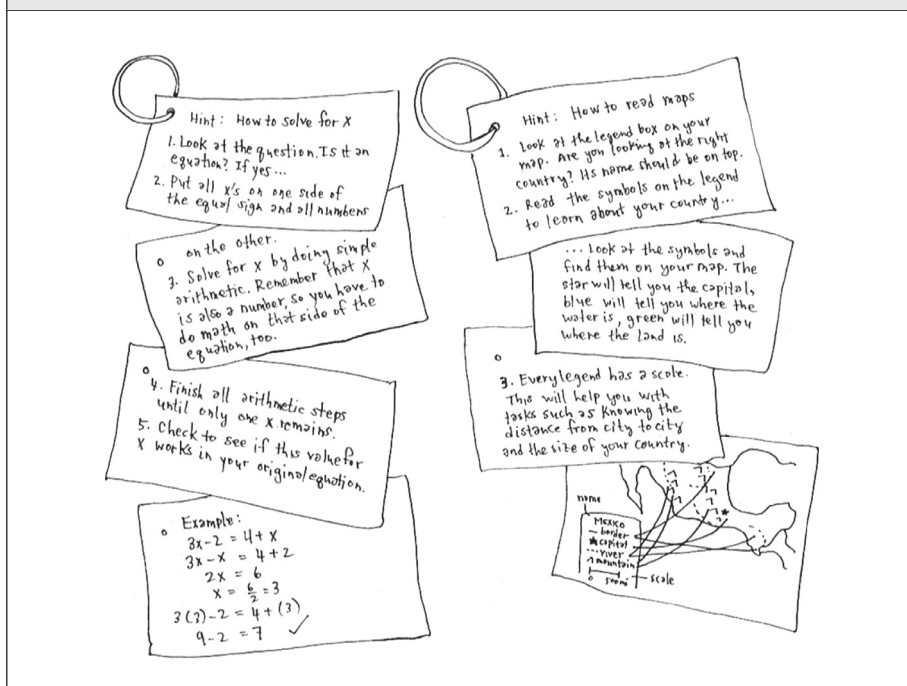 Hint: How to solve for X
1. Look at the question. Is it an
equation? If yes...
2. Put all x's on one side of
the equal sign and all numbers
on the other.
3. Solve for x by doing simple
arithmetic. Remember that X
is also a number, so you have to
do math on that side of the
equation, too.
4. Finish all arithmetic steps
until only one x remains.
5. Check to see if this value for
X works in your original equation.
Example:
3x-2 = 4+x
3x-x = 4+2
2x = 6
x = 6/2 = 3
3(3)-2 = 4+(3)
9-2 = 7 ✓
Hint: How to read maps
1. Look at the legend box on your
map. Are you looking at the right
country? Its name should be on top.
2. Read the symbols on the legend
to learn about your country...
... Look at the symbols and
find them on your map. The
star will tell you the capital,
blue will tell you where the
water is, green will tell you
where the land is.
3. Every legend has a scale.
This will help you with
tasks such as knowing the
distance from city to city
and the size of your country.
name
Mexico
— border
★ capital
... river
^ mountain
0 500mi — scale